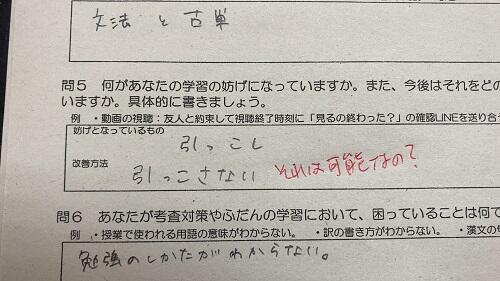 文法と古単
問5 何があなたの学習の妨げになっていますか。また、今後はそれをどの
いますか。具体的に書きましょう。
例 ・動画の視聴：友人と約束して視聴終了時刻に「見るの終わった？」の確認LINEを送り合う
妨げとなっているもの
引っこし
改善方法
引っこさない それは可能なの？
問6 あなたが考査対策やふだんの学習において、困っていることは何で
例 ・授業で使われる用語の意味がわからない。 ・訳の書き方がわからない。 ・漢文の
勉強のしかたがわからない。